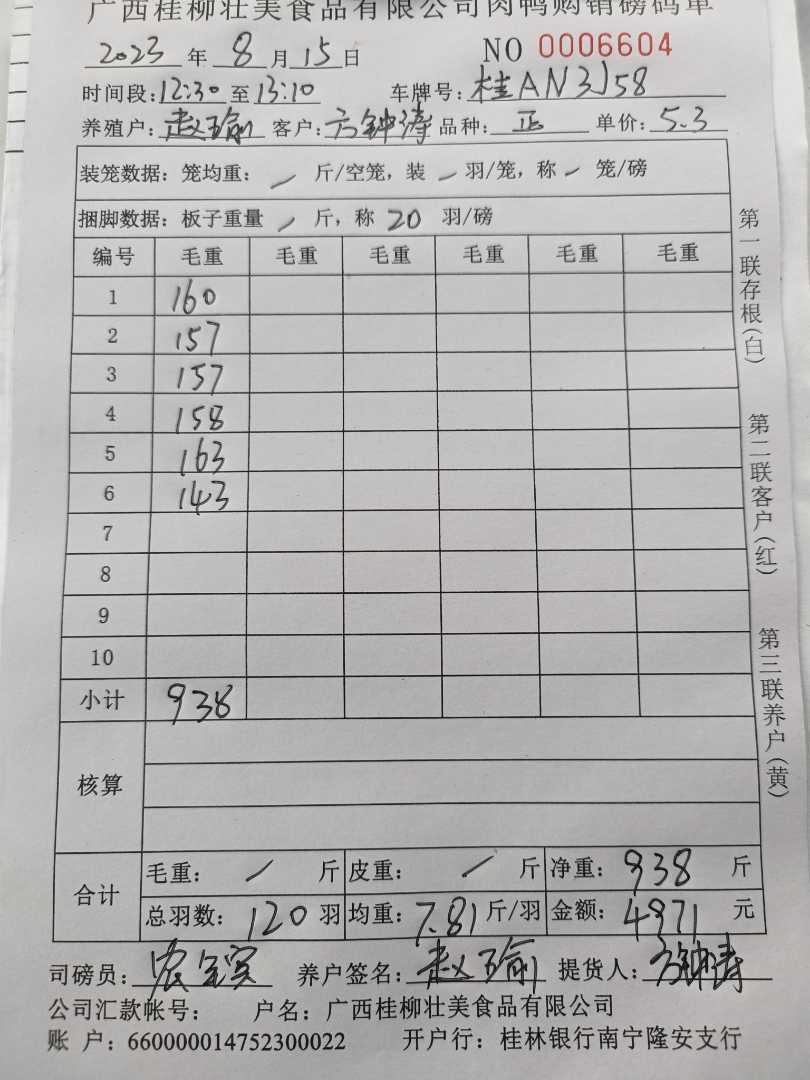 广西桂柳壮美食品有限公司肉鸭购销磅码单
2023 年 8 月 15 日 NO 0006604
时间段: 12:30 至 13:10 车牌号: 桂AN3J58
养殖户: 赵瑜 客户: 方钟涛 品种: 正 单价: 5.3
装笼数据: 笼均重: / 斤/空笼, 装 / 羽/笼, 称 / 笼/磅
捆脚数据: 板子重量 / 斤, 称 20 羽/磅
编号 毛重 毛重 毛重 毛重 毛重 毛重
1 160
2 157
3 157
4 158
5 163
6 143
7
8
9
10
小计 938
核算
合计
毛重: / 斤 皮重: / 斤 净重: 938 斤
总羽数: 120 羽 均重: 7.81 斤/羽 金额: 4971 元
司磅员: 养户签名: 赵瑜 提货人: 方钟涛
公司汇款帐号: 户名: 广西桂柳壮美食品有限公司
账 户: 660000014752300022 开户行: 桂林银行南宁隆安支行
第一联存根(白) 第二联客户(红) 第三联养户(黄)